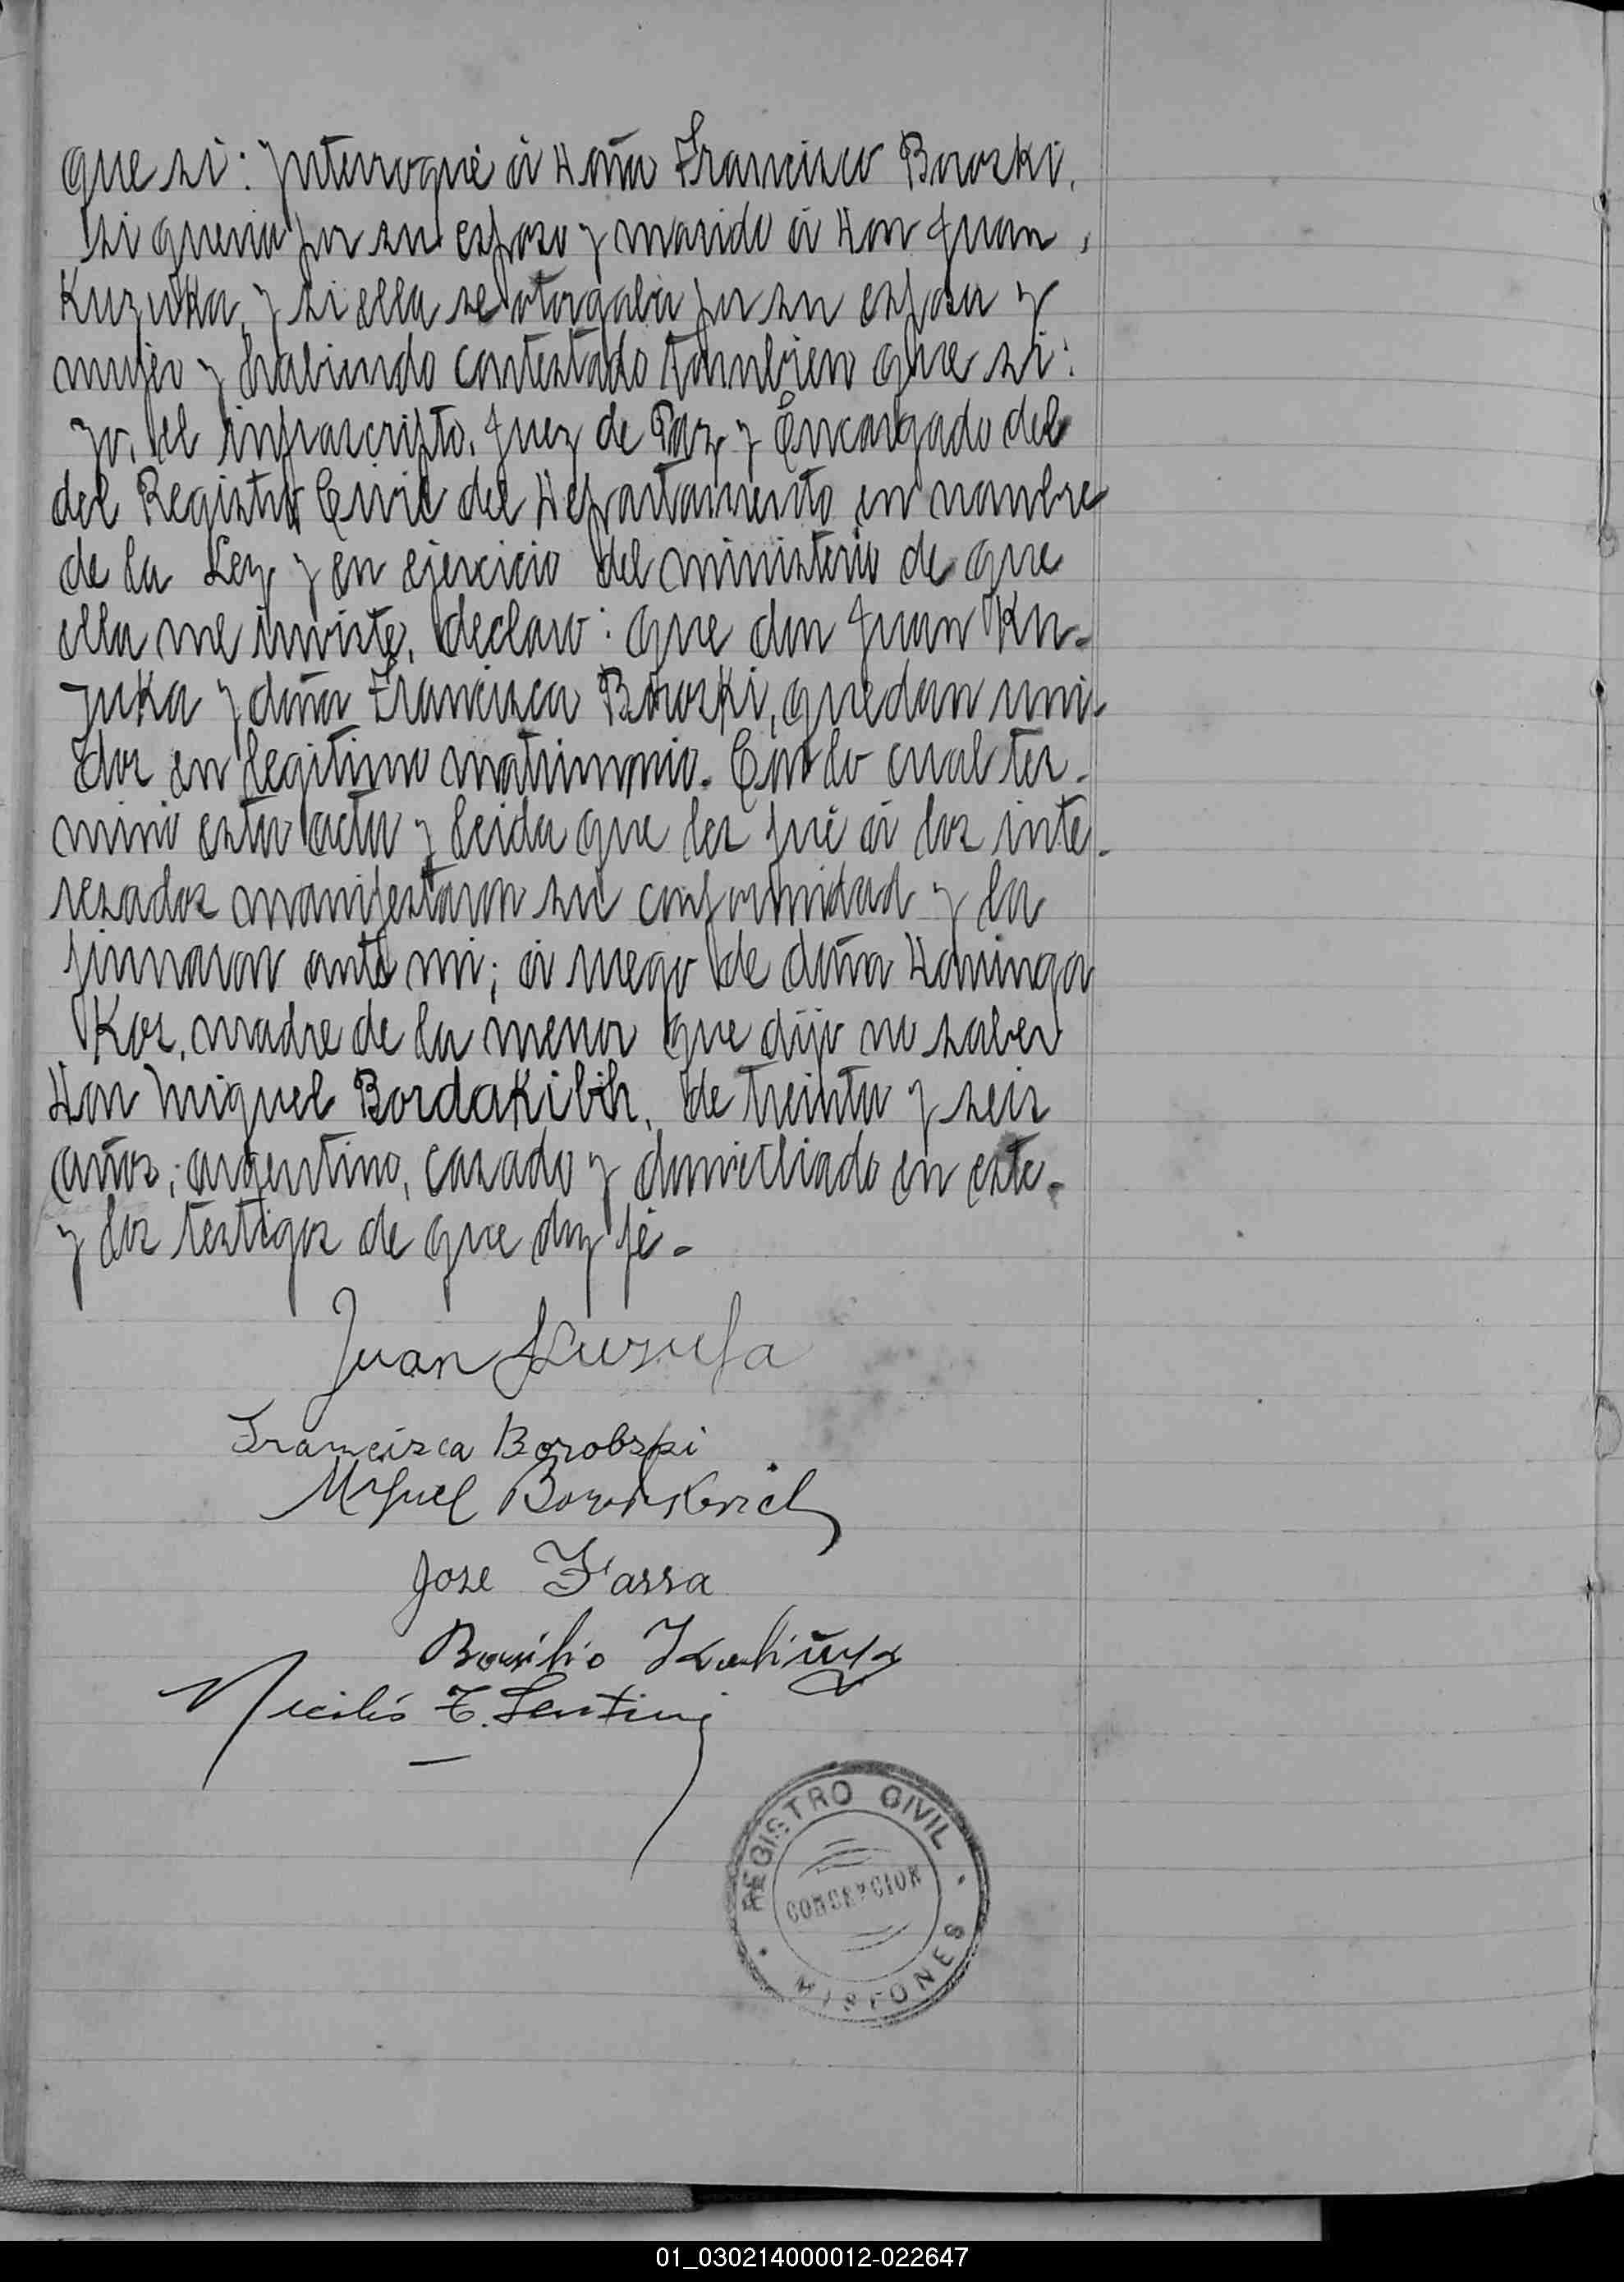 que si: Interrogué á Doña Francisca Boroski,
si queria por su esposo y marido á Don Juan
Kuzuka, y si ella se otorgaba por su esposa y
mujer y habiendo contestado tambien que si:
yo, el infrascripto, Juez de Paz y Encargado del
del Registro Civil del Departamento en nombre
de la Ley y en ejercicio del ministerio de que
ella me inviste, declaro: que don Juan Ku-
zuka y doña Francisca Boroski, quedan uni-
dos en legitimo matrimonio. Con lo cual ter-
minó esta acta y leida que les fué á los inte-
resados manifestaron su conformidad y la
firmaron ante mi; á ruego de doña Dominga
Kos, madre de la menor que dijo no saber
Don Miguel Bordakibih, de treinta y seis
años, argentino, casado y domiciliado en este-
y los testigos de que doy fé-
Juan
Francisca Borobski
Miguel
Jose Fassa
Basilio
REGISTRO CIVIL
CONCEPCION
MISIONES
01_030214000012-022647